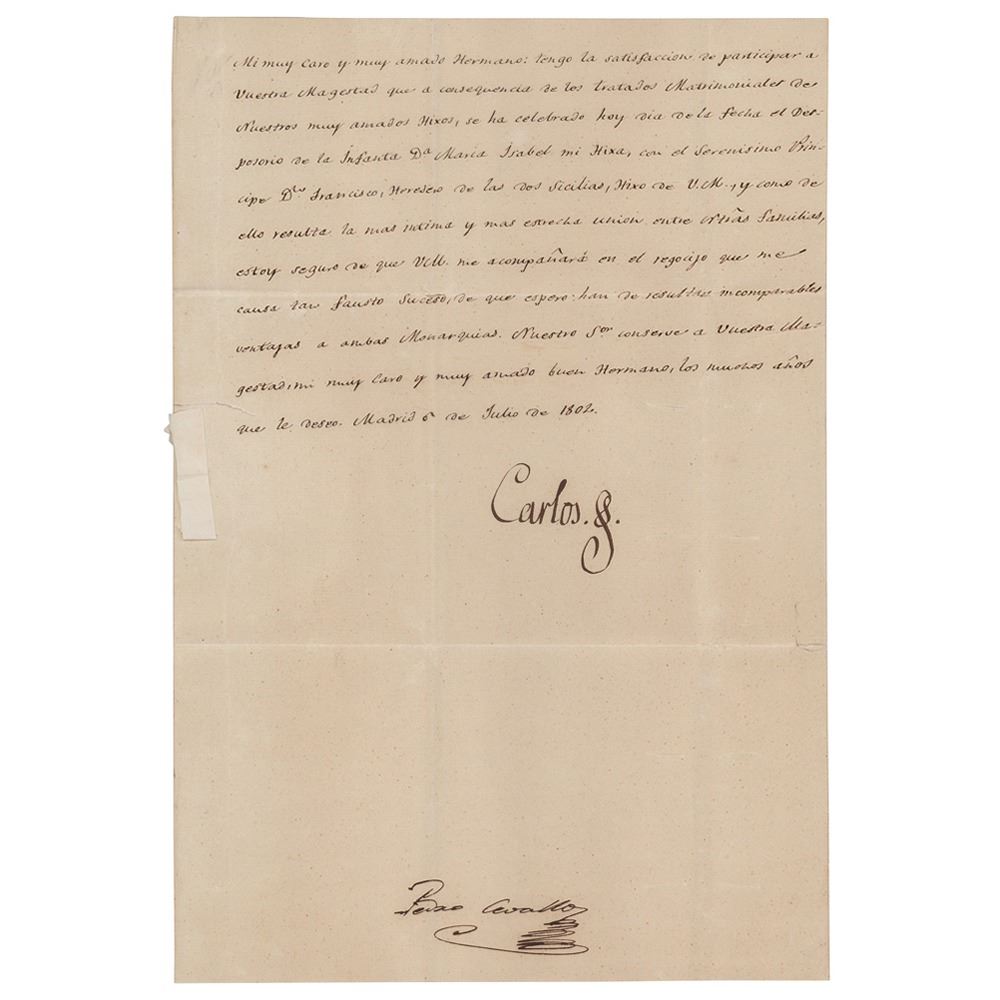 Mi muy Caro y muy amado Hermano: tengo la satisfaccion de participar a
Vuestra Magestad que a consequencia de los tratados Matrimoniales de
Nuestros muy amados Hixos, se ha celebrado hoy dia de la fecha el Des-
posorio de la Infanta Dª Maria Isabel mi Hixa, con el Serenisimo Prin-
cipe Dⁿ Francisco, Heredero de las dos Sicilias, Hixo de V.M., y como de
ello resulta la mas intima y mas estrecha union entre ntrâs familias,
estoy seguro de que V.M. me acompañará en el regocijo que me
causa tan fausto Suceso, de que espero han de resultar incomparables
ventajas a ambas Monarquias. Nuestro Sor conserve a Vuestra Ma-
gestad, mi muy Caro y muy amado buen Hermano, los muchos años
que le deseo. Madrid 6 de Julio de 1802.
Carlos.
Pedro Cevallos